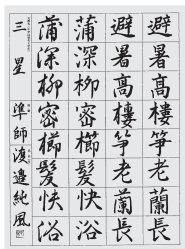 避暑高樓箏老蘭長
避暑高樓箏老蘭長
蒲深柳密櫛髮快浴
蒲深柳密櫛髮快浴
三星 準師 渡邉純風